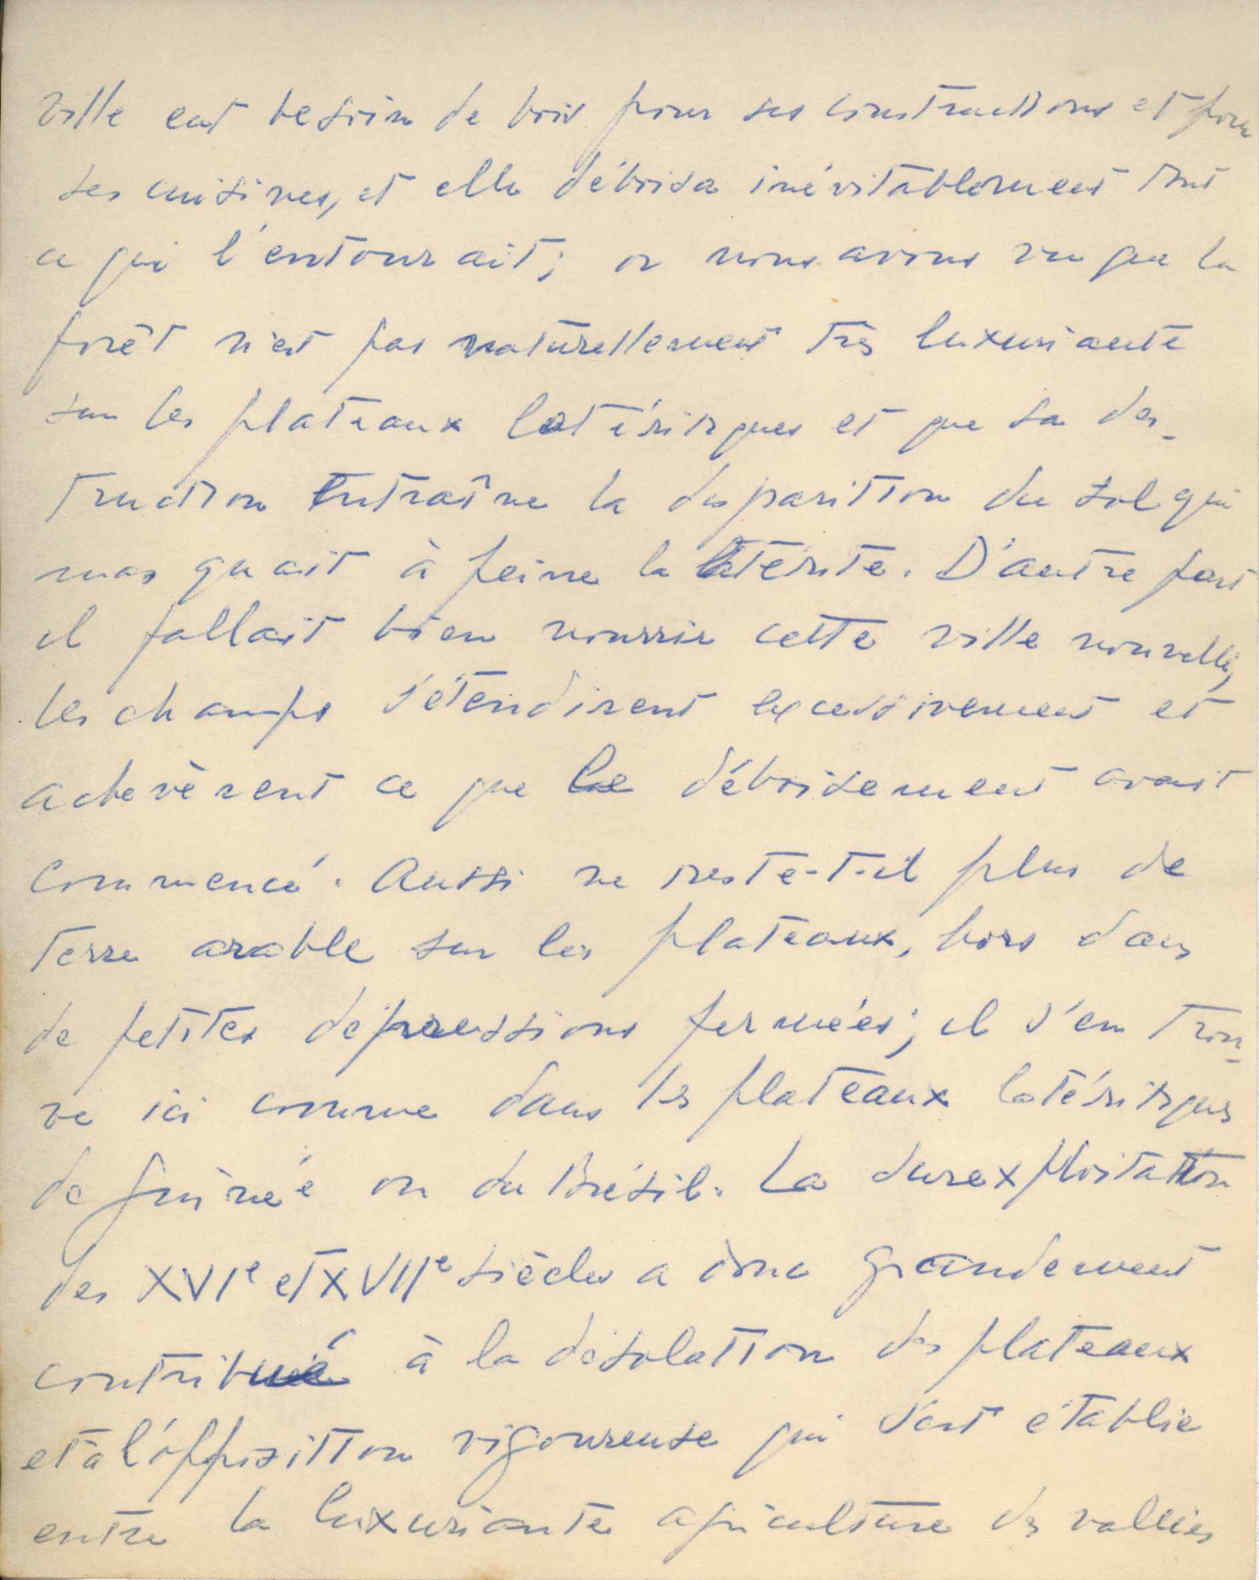 ville eut besoin de bois pour ses constructions et pour
ses cuisines, et elle déboisa inévitablement tout
ce qui l'entourait; or nous avons vu que la
forêt n'est pas naturellement très luxuriante
sur les plateaux latéritiques et que sa des-
truction entraîne la disparition du sol qui
masquait à peine la latérite. D'autre part
il fallait bien nourrir cette ville nouvelle,
les champs s'étendirent excessivement et
achevèrent ce que le déboisement avait
commencé. Aussi ne reste-t-il plus de
terre arable sur les plateaux, hors dans
de petites dépressions fermées; il s'en trou-
ve ici comme dans les plateaux latéritiques
de Guinée ou du Brésil. La surexploitation
des XVIe et XVIIe siècles a donc grandement
contribué à la désolation des plateaux
et à l'opposition vigoureuse qui s'est établie
entre la luxuriante agriculture des vallées